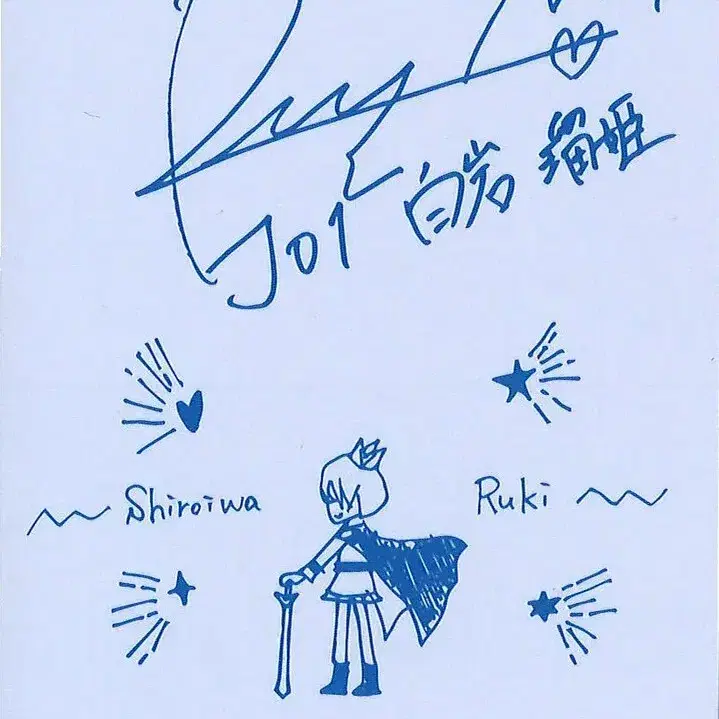 JO1 白岩 瑠姫
Shiroiwa Ruki